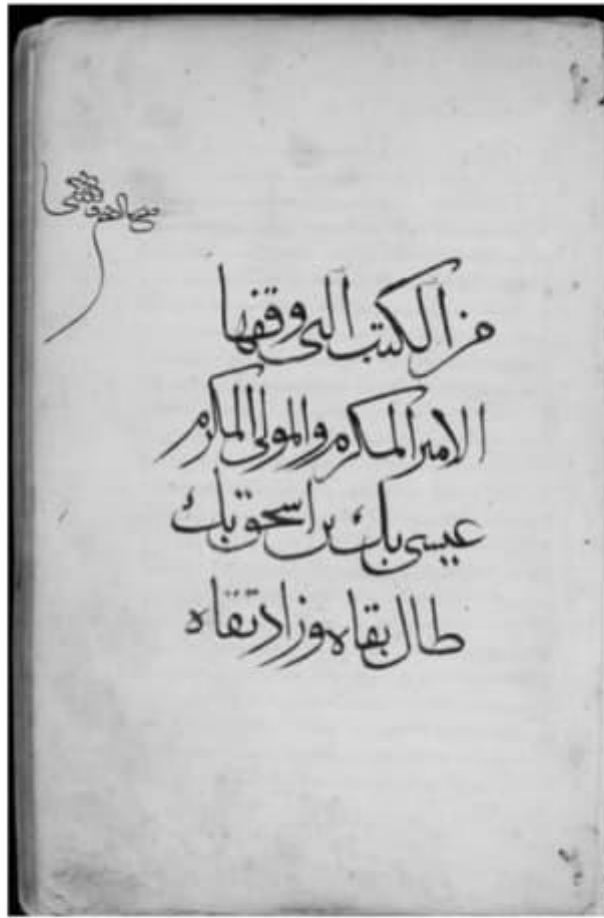 من الكتب التى وقفها
الامير المكرم والمولى المكرم
عيسى بك بن اسحق بك
طال بقاه وزاد تقاه